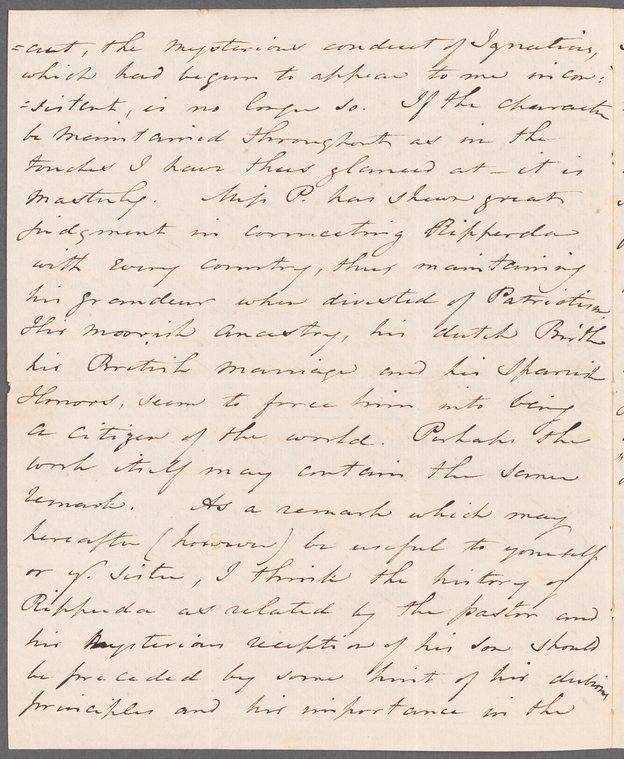 =aut, the mysterious conduct of Ignatius,
which had begun to appear to me incon:
=sistent, is no longer so. If the character
be maintained throughout as in the
touches I have thus glanced at - it is
masterly. Miss P. has shewn great
judgment in connecting Ripperda
with every country, thus maintaining
his grandeur when divested of Patriotism.
His moorish ancestry, his dutch Birth
his British marriage and his Spanish
Honors, seem to force him into being
a citizen of the world. Perhaps the
work itself may contain the same
remark. As a remark which may
hereafter (however) be useful to yourself
or yr. sister, I think the history of
Ripperda as related by the pastor and
his mysterious reception of his son should
be preceded by some hint of his
principles and his importance in the